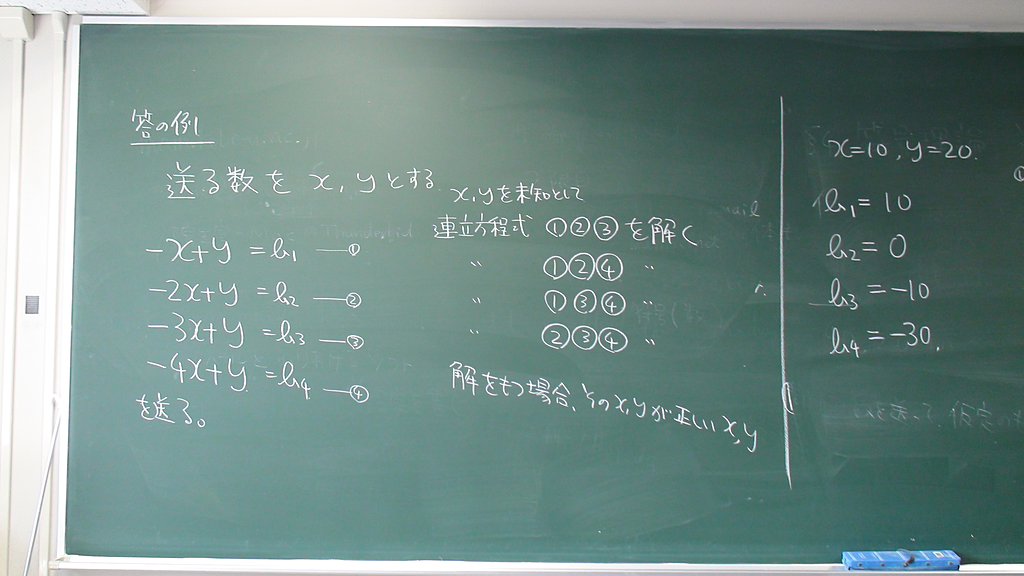 答の例
送る数を x, y とする
-x+y = h1 ―①
-2x+y = h2 ―②
-3x+y = h3 ―③
-4x+y = h4 ―④
を送る。
x, y を未知として
連立方程式 ①②③ を解く
〃 ①②④ 〃
〃 ①③④ 〃
〃 ②③④ 〃
解をもつ場合、そのx,yが正しいx,y
x=10, y=20.
h1 = 10
h2 = 0
h3 = -10
h4 = -30.